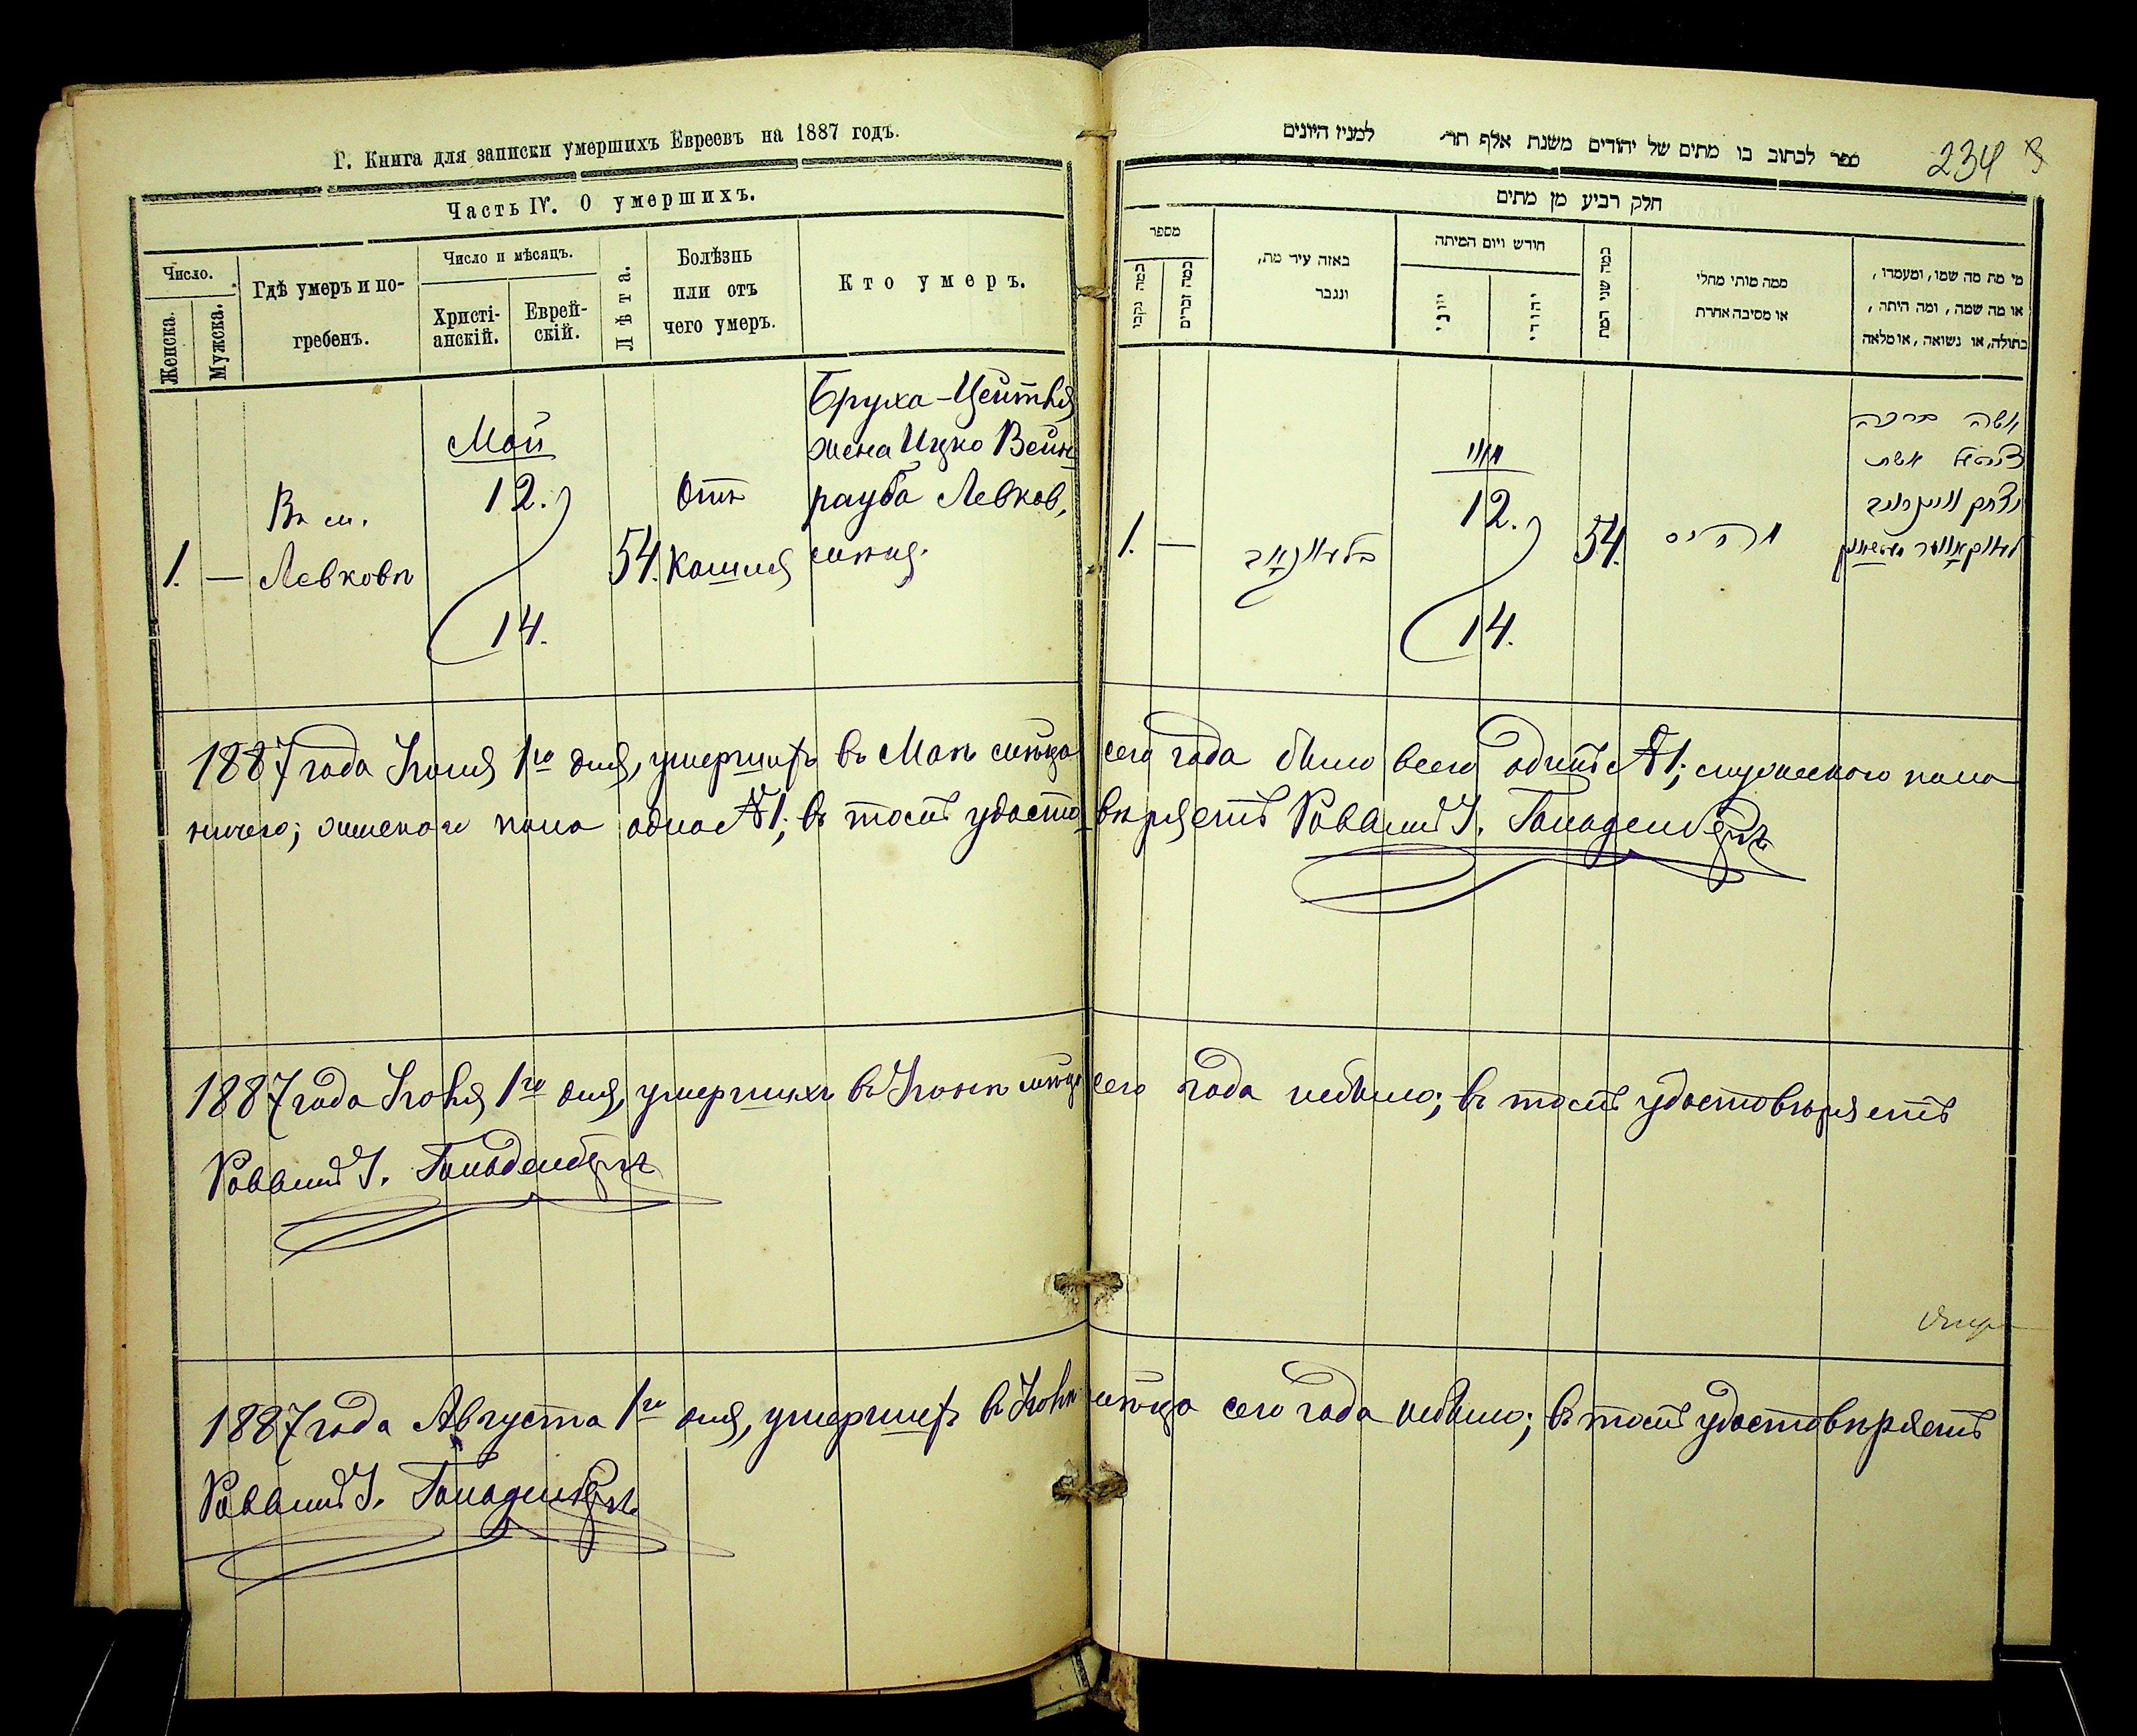 Г. Книга для записки умершихъ Евреевъ на 1887 годъ.
Часть IV. О умершихъ.
Число.
Женска.
Мужска.
Гдѣ умеръ и по-
гребенъ.
Число и мѣсяцъ.
Христі-
анскій.
Еврей-
скій.
Лѣта.
Болѣзнь
или отъ
чего умеръ.
Кто умеръ.
1.
—
Въ м.
Левковѣ
Май
12.
14.
54.
Отъ
Кашля
Бруха-Цейтля
жена Ицко Вейн-
рауба Левков,
234
ספר לכתוב בו מתים של יהודים משנת אלף תר׳ למניז היונים
חלק רביע מן מתים
מספר
כמה נקבי
כמה זכרים
באזה עיר מת,
ונגבר
חודש ויום המיתה
יווני
יהודי
כמה שני המת
ממה מותי מחלי
או מסיבה אחרת
מי מת מה שמו, ומעמדו,
או מה שמה, ומה היתה,
בתולה, או נשואה, או מלאה
1.
—
מאי
12.
14.
54.
אשה ברכה
צייטיל אשת
יצחק ווינרויב
1887 года Іюня 1го дня, умершихъ въ Маѣ мѣсяцѣ сего года было всего одинъ №1; мужескаго пола
ничего; женскаго пола одна №1; въ томъ удостовѣряетъ Раввинъ І.
1887 года Іюля 1го дня, умершихъ въ Іюнѣ мѣсяцѣ сего года небыло; въ томъ удостовѣряетъ
Раввинъ І.
1887 года Августа 1го дня, умершихъ въ Іюлѣ мѣсяцѣ сего года небыло; въ томъ удостовѣряетъ
Раввинъ І.